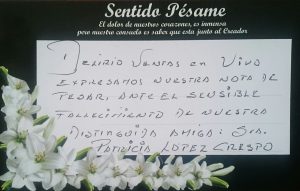 Sentido Pésame
El dolor de nuestros corazones, es inmenso
pero nuestro consuelo es saber que esta junto al Creador
Delirio Ventas en Vivo
expresamos nuestra nota de
pesar, ante el sensible
fallecimiento de nuestra
distinguida amiga: Sra.
Patricia López Crespo